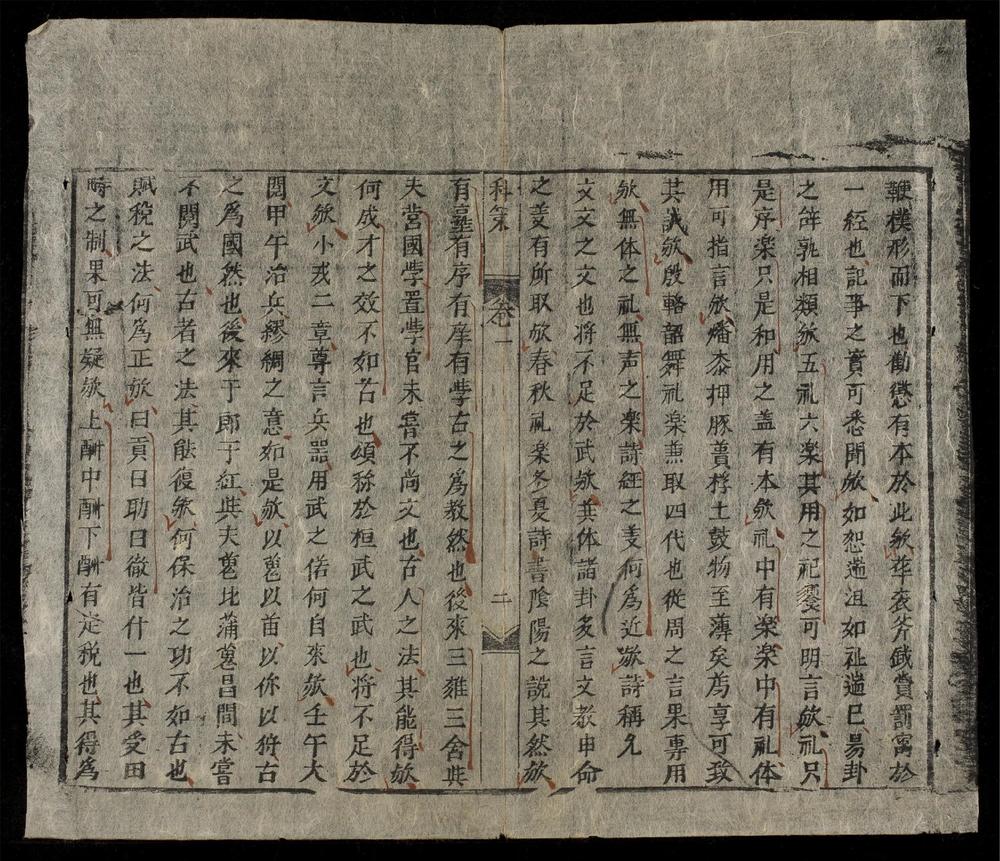 鞭樸形而下也勸懲有本於此欤華衮斧鉞賞罰寓於
一經也記事之實可悉聞欤如恕遄沮如祉遄已易卦
之辝孰相類欤五礼六楽其用之祀饗可明言欤礼只
是序楽只是和用之盖有本欤礼中有楽楽中有礼体
用可指言欤燔黍押豚蕢桴土鼓物至薄矣為享可致
其誠欤殷輅韶舞礼楽兼取四代也従周之言果專用
欤無体之礼無声之楽詩經之義何為近欤詩稱允
文文之文也将不足於武欤其体諸卦多言文教申命
之義有所取欤春秋礼楽冬夏詩書陰陽之說其然欤
科策 卷一 二
有塾有序有庠有斈古之為教然也後來三雍三舍與
夫营國斈置斈官未嘗不尚文也古人之法其能得欤
何成才之效不如古也頌称於桓武之武也将不足於
文欤小戎二章尊言兵器用武之偌何自來欤壬午大
閲甲午治兵繆綢之意如是欤以蒐以苗以狝以狩古
之爲國然也後來于郎于紅與夫蒐比蒲蒐昌間未嘗
不閱武也古者之法其能復欤何保治之功不如古也
賦稅之法何爲正欤曰貢曰助曰徹皆什一也其受田
時之制果可無疑欤上酬中酬下酬有定税也其得爲